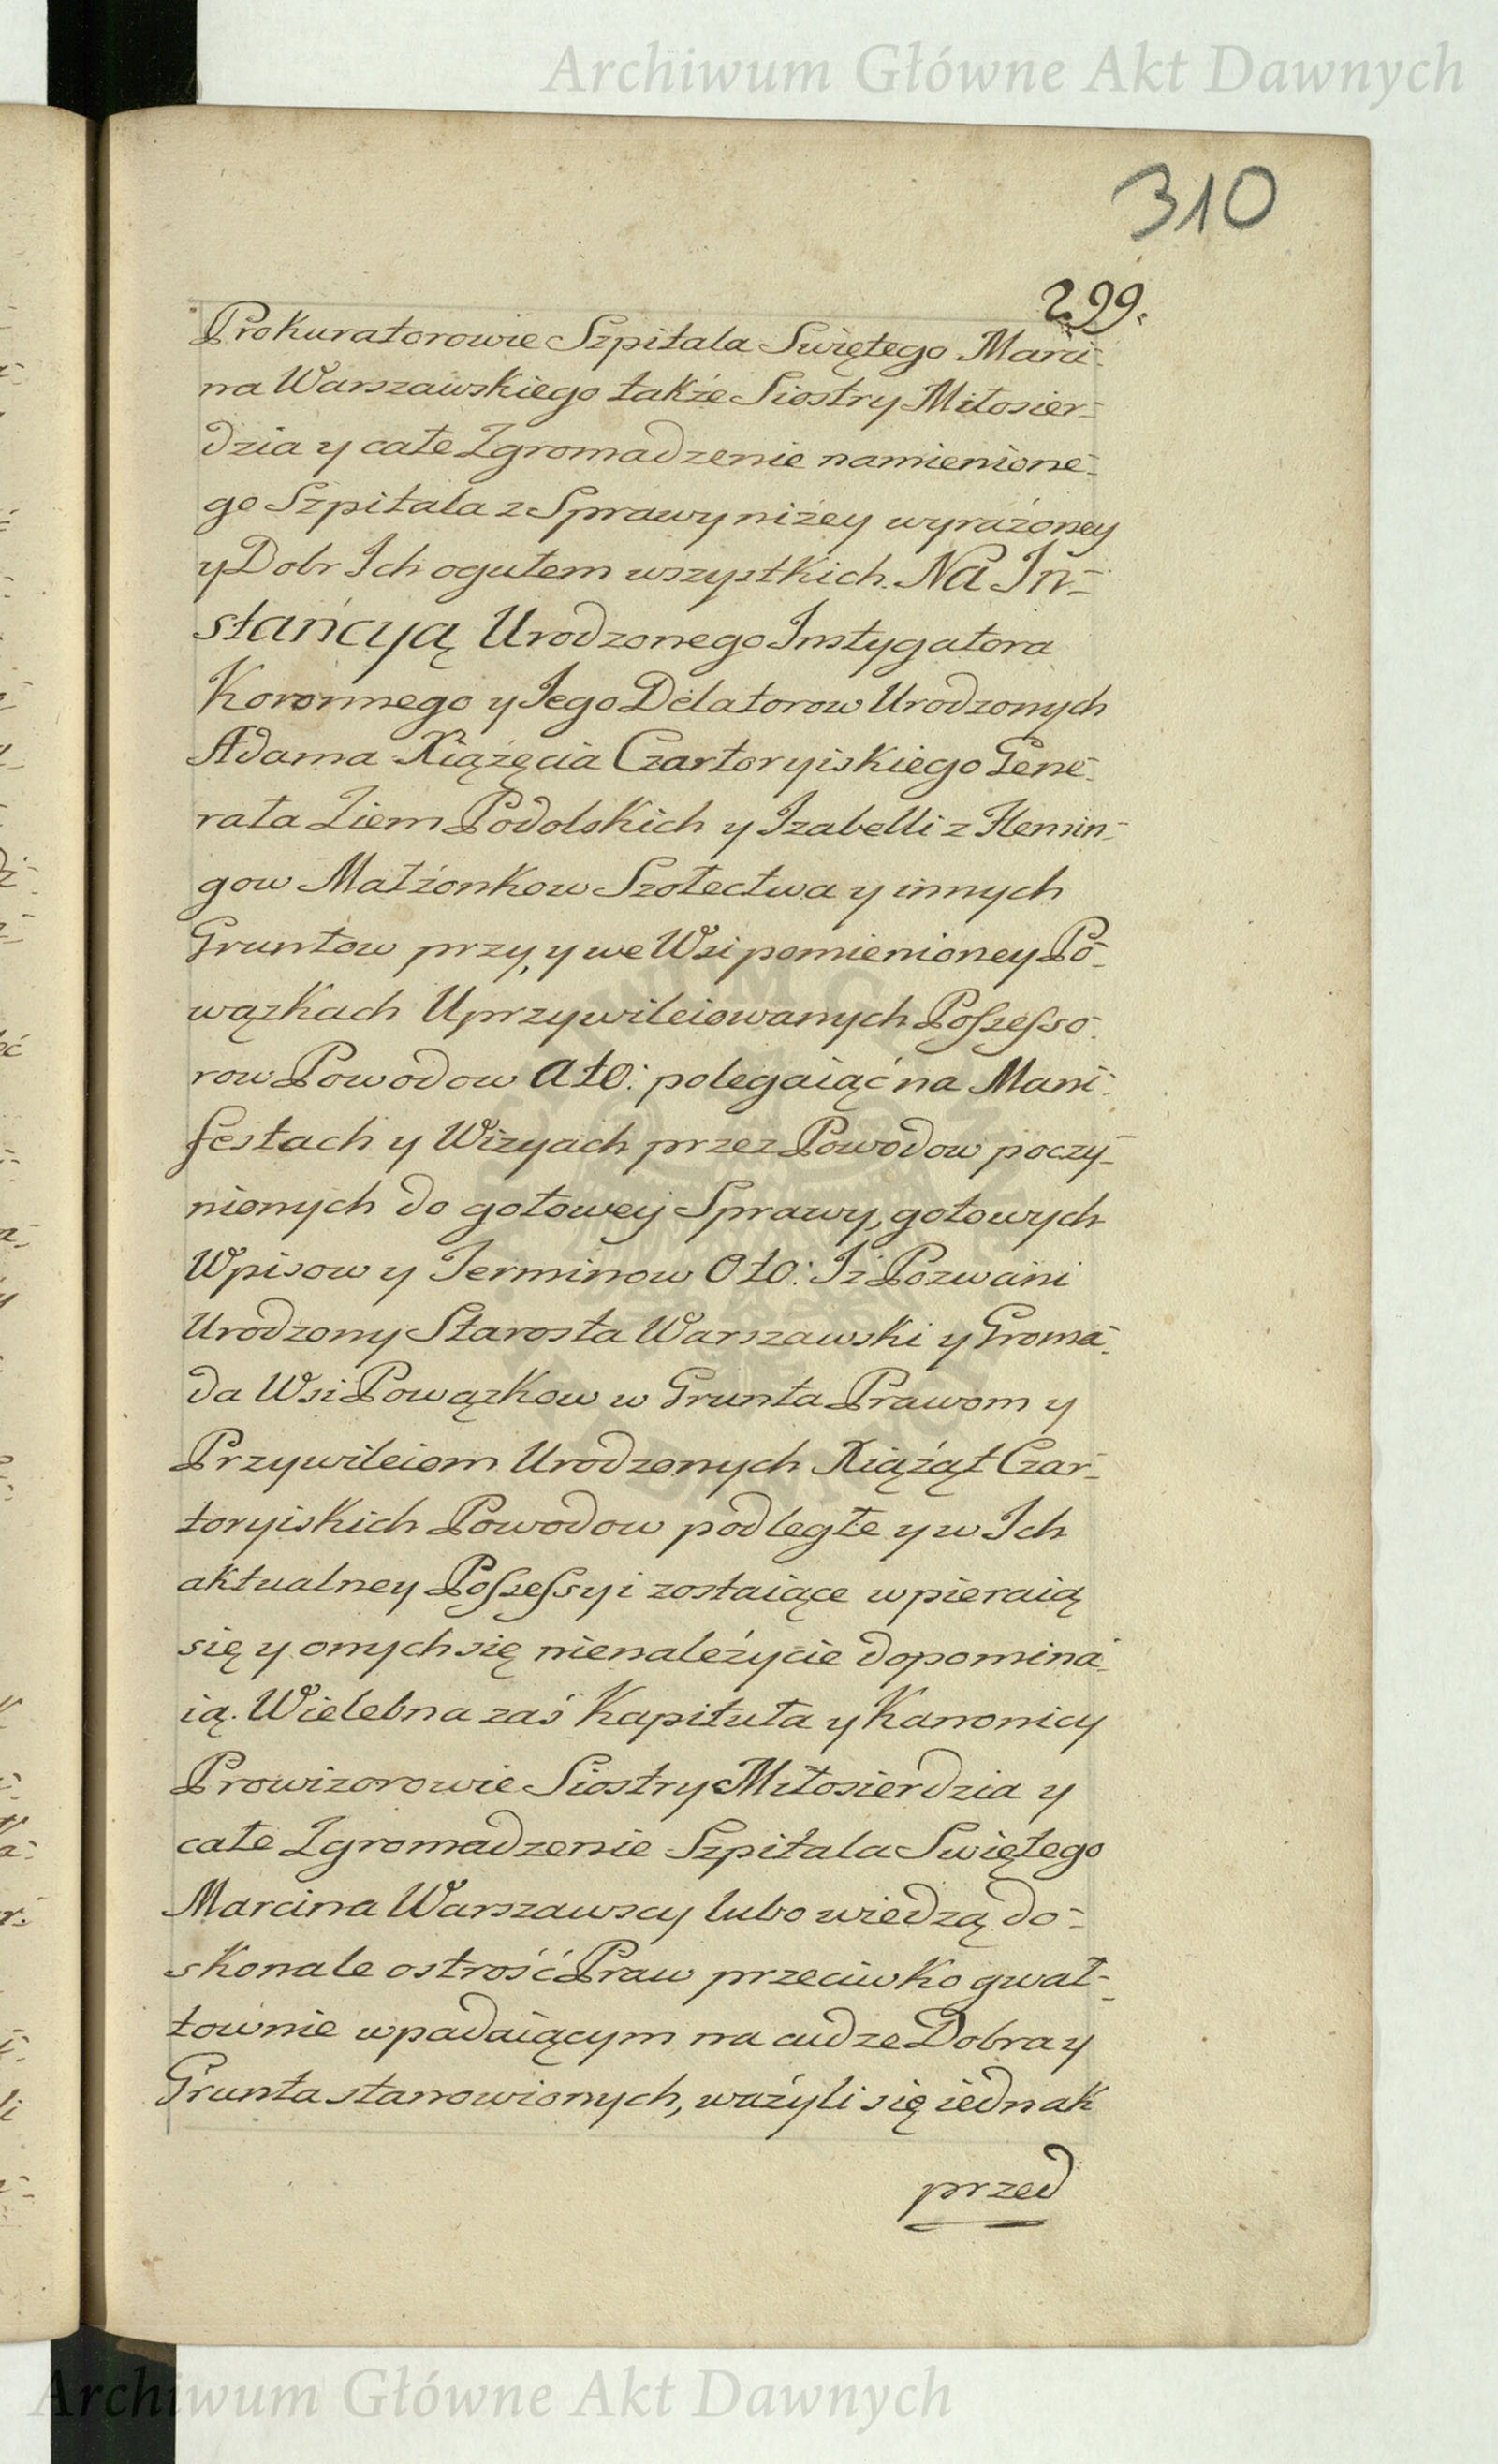 Archiwum Główne Akt Dawnych
310
299.
Prokuratorowie Szpitala Swiętego Marci-
na Warszawskiego także Siostry Miłosier-
dzia y całe Zgromadzenie namienione-
go Szpitala z Sprawy niżey wyrażoney
y Dobr Ich ogułem wszystkich. Na In-
stancyą Urodzonego Instygatora
Koronnego y Jego Delatorow Urodzonych
Adama Xiążęcia Czartoryiskiego Gene-
rała Ziem Podolskich y Izabelli z Flemin-
gow Małżonkow Szołectwa y innych
Gruntow przy, y we Wsi pomienioney Po-
wązkach Uprzywileiowanych Possesso-
row Powodow Ato: polegaiąc na Mani-
festach y Wizyach przez Powodow poczy-
nionych do gotowey Sprawy, gotowych
Wpisow y Terminow Oto: Iż Pozwani
Urodzony Starosta Warszawski y Groma-
da Wsi Powązkow w Grunta Prawom y
Przywileiom Urodzonych Xiążąt Czar-
toryiskich Powodow podległe y w Ich
aktualney Possessyi zostaiące wpieraią
się y onych się nienależycie dopomina-
ią. Wielebna zaś Kapituła y Kanonicy
Prowizorowie Siostry Miłosierdzia y
całe Zgromadzenie Szpitala Swiętego
Marcina Warszawscy lubo wiedzą do-
skonale ostrość Praw przeciwko gwał-
townie wpadaiącym na cudze Dobra y
Grunta stanowionych, ważyli się iednak
przed
Archiwum Główne Akt Dawnych